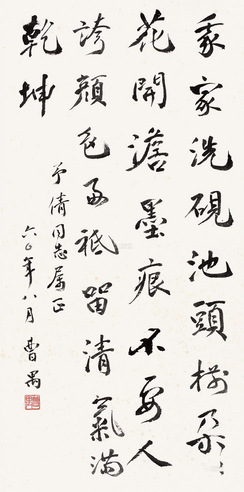 我家洗硯池頭樹朵〻
花開澹墨痕不要人
誇顏色好祗留清氣滿
乾坤
予倩同志屬正
六〇年八月 曹禺